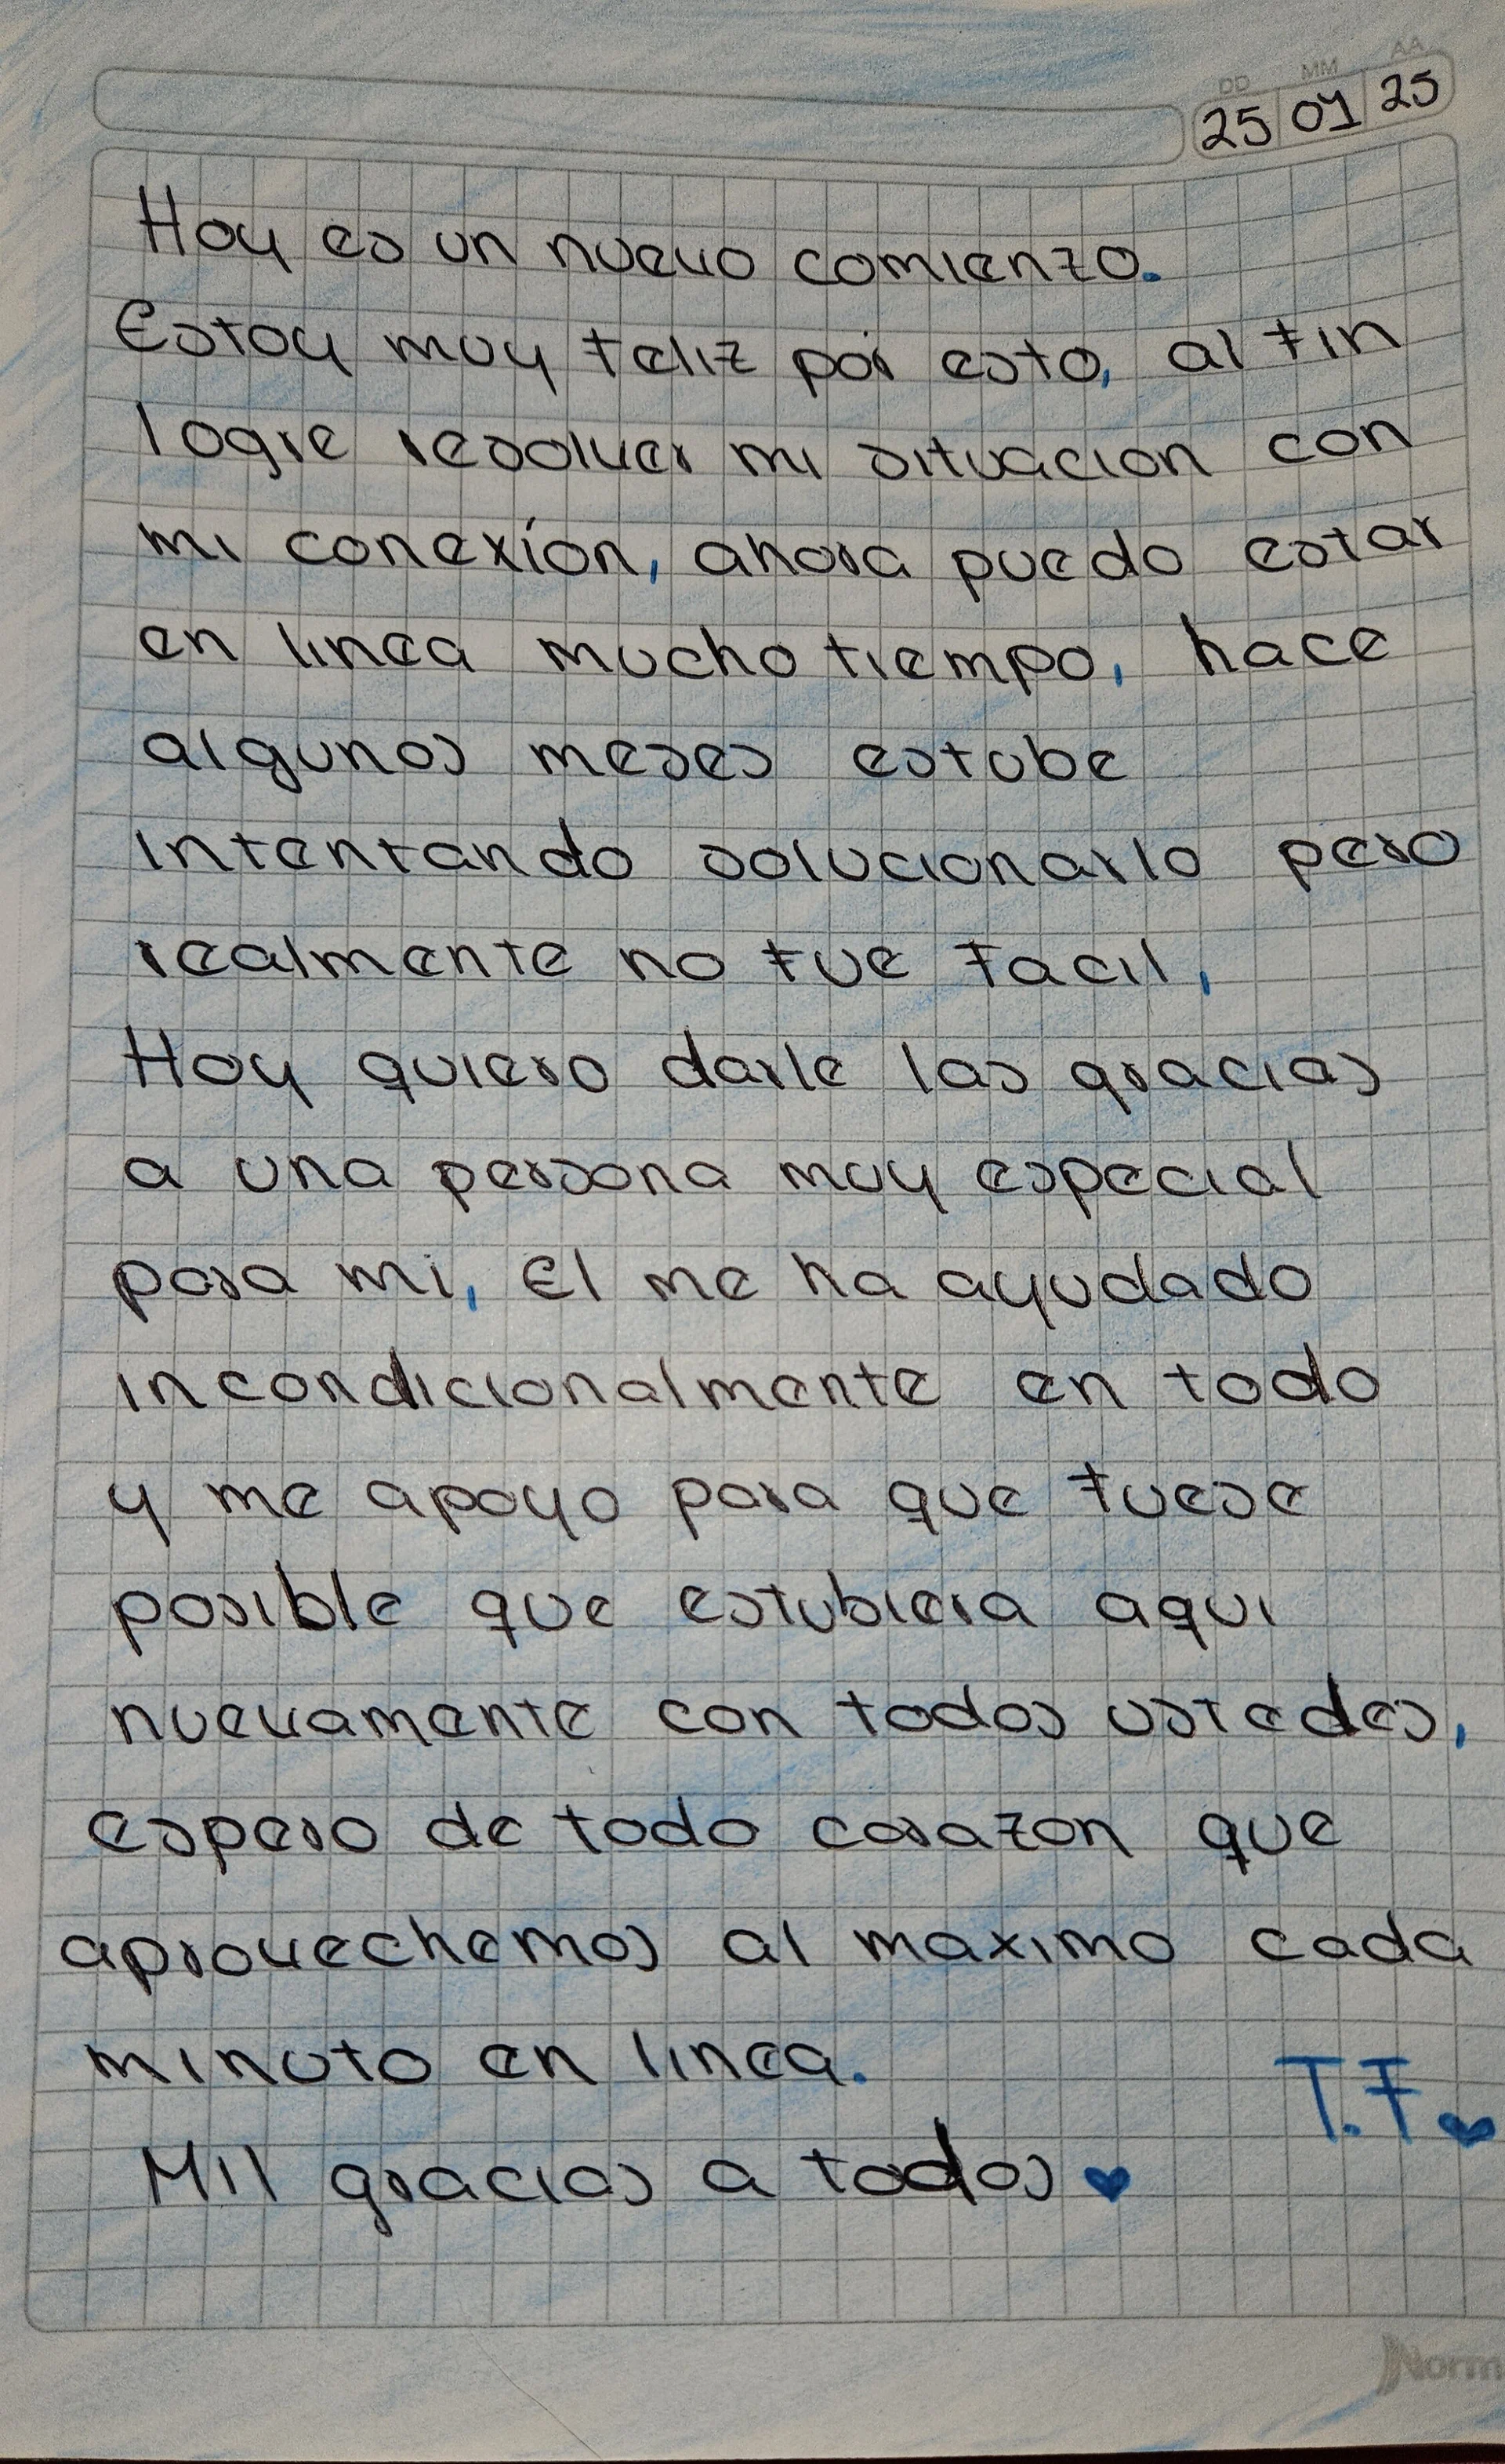 DD MM AA
25 01 25
Hoy es un nuevo comienzo.
Estoy muy feliz por esto, al fin
logre resolver mi situacion con
mi conexíon, ahora puedo estar
en linea mucho tiempo, hace
algunos meses estube
intentando solucionarlo pero
realmente no fue facil,
Hoy quiero darle las gracias
a una persona muy especial
para mi, El me ha ayudado
incondicionalmente en todo
y me apoyo para que fuese
posible que estubiera aqui
nuevamente con todos ustedes,
espero de todo corazon que
aprovechemos al maximo cada
minuto en linea.
T.F
Mil gracias a todos
Norm